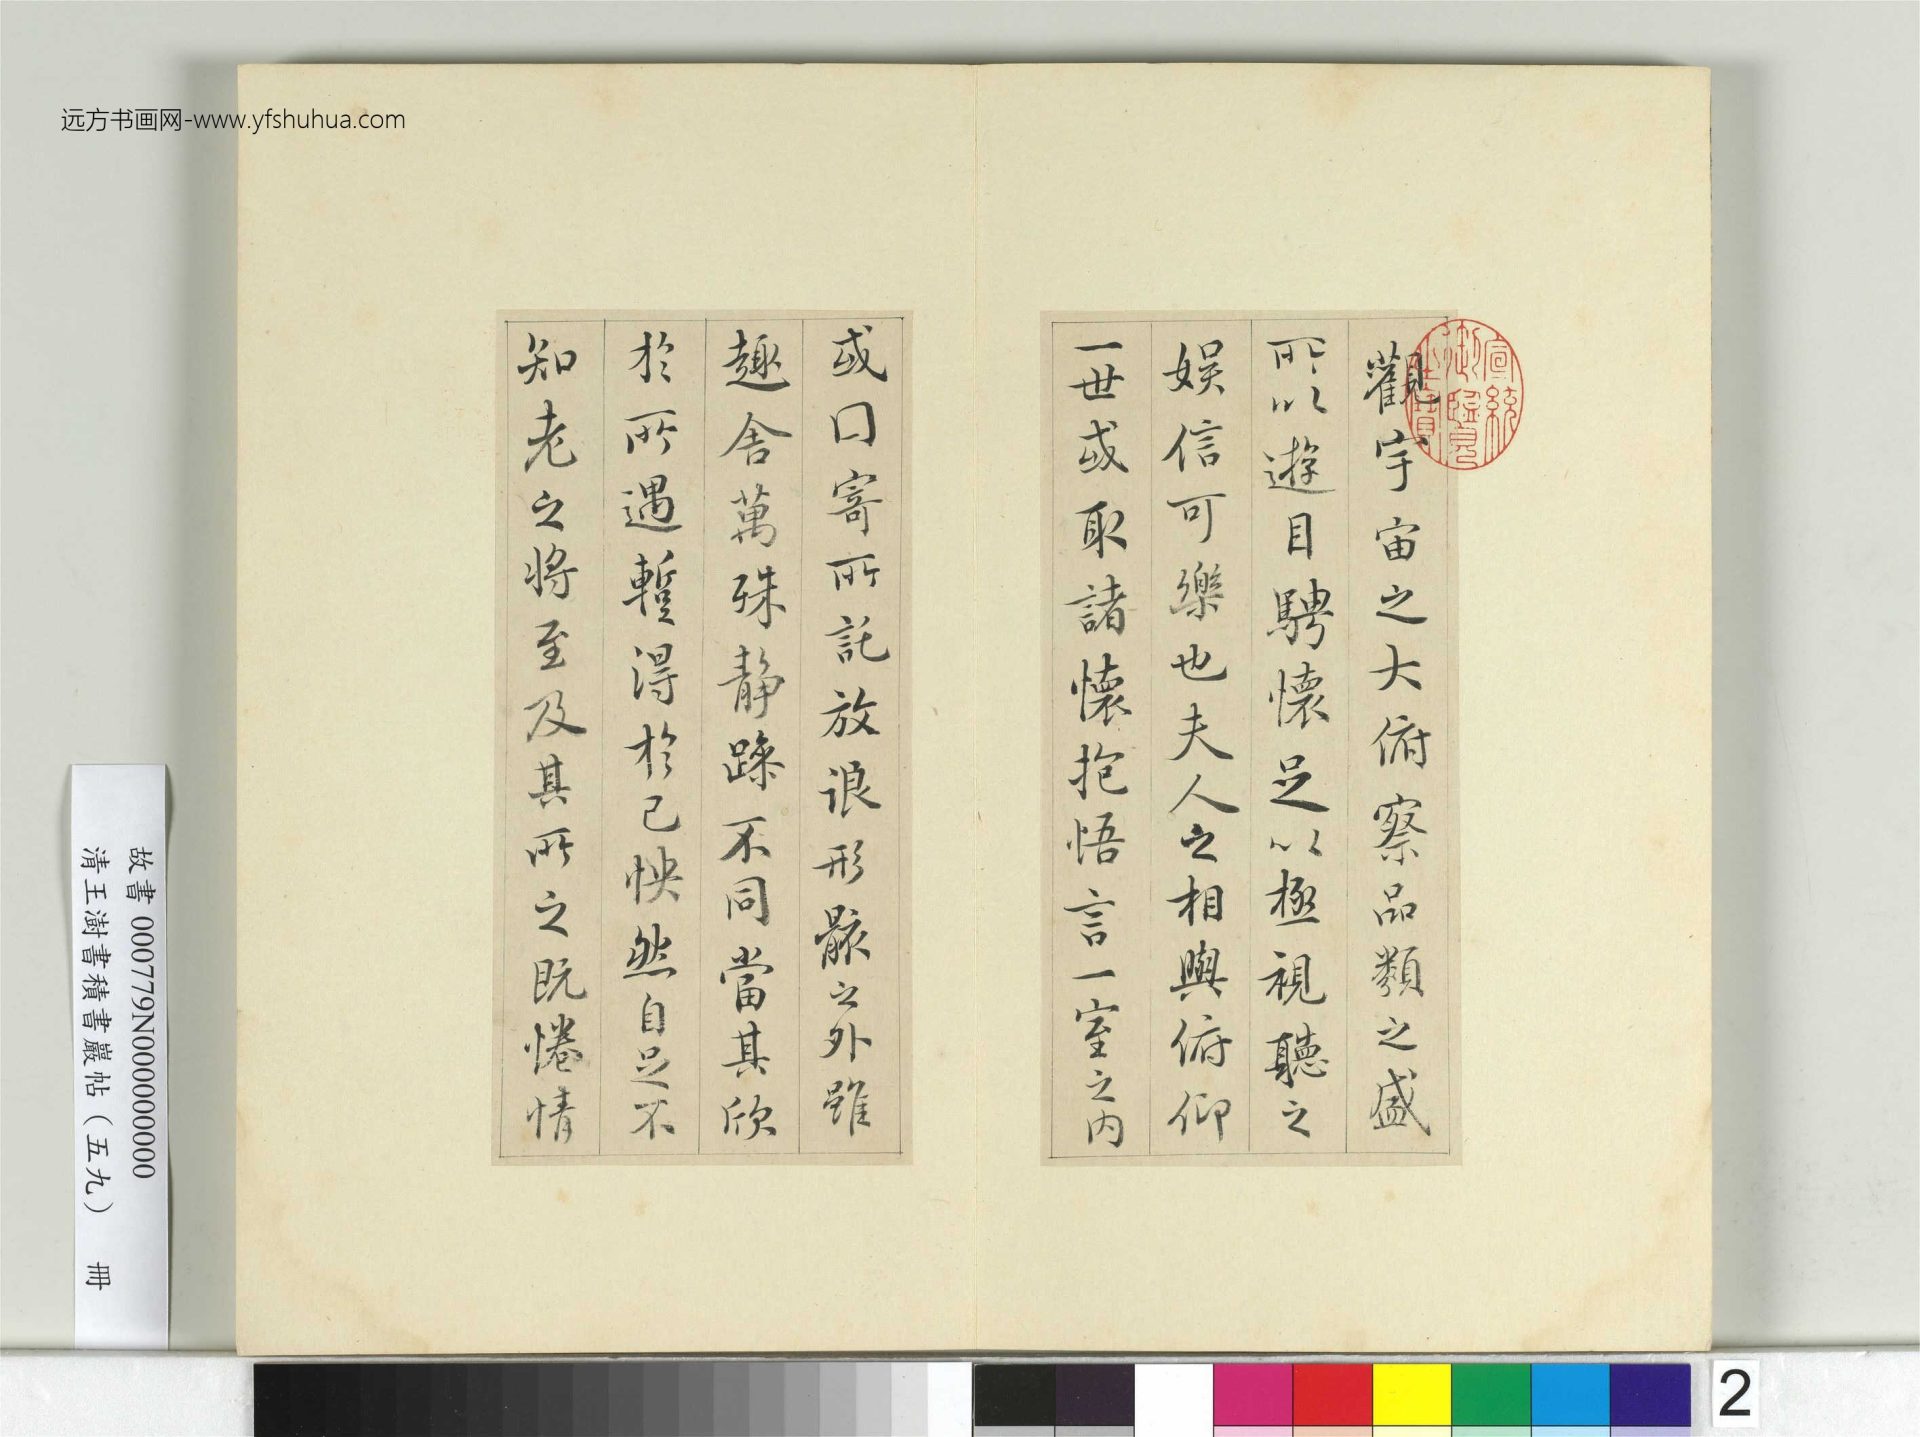 远方书画网-www.yfshuhua.com
觀宇宙之大俯察品類之盛
所以遊目騁懷足以極視聽之
娛信可樂也夫人之相與俯仰
一世或取諸懷抱悟言一室之內
或曰寄所託放浪形骸之外雖
趣舍萬殊靜躁不同當其欣
於所遇蹔得於己怏然自足不
知老之將至及其所之既惓情
宣統御覽之寶
故書 000779N000000000
清王澍書積書巖帖（五九） 冊
2